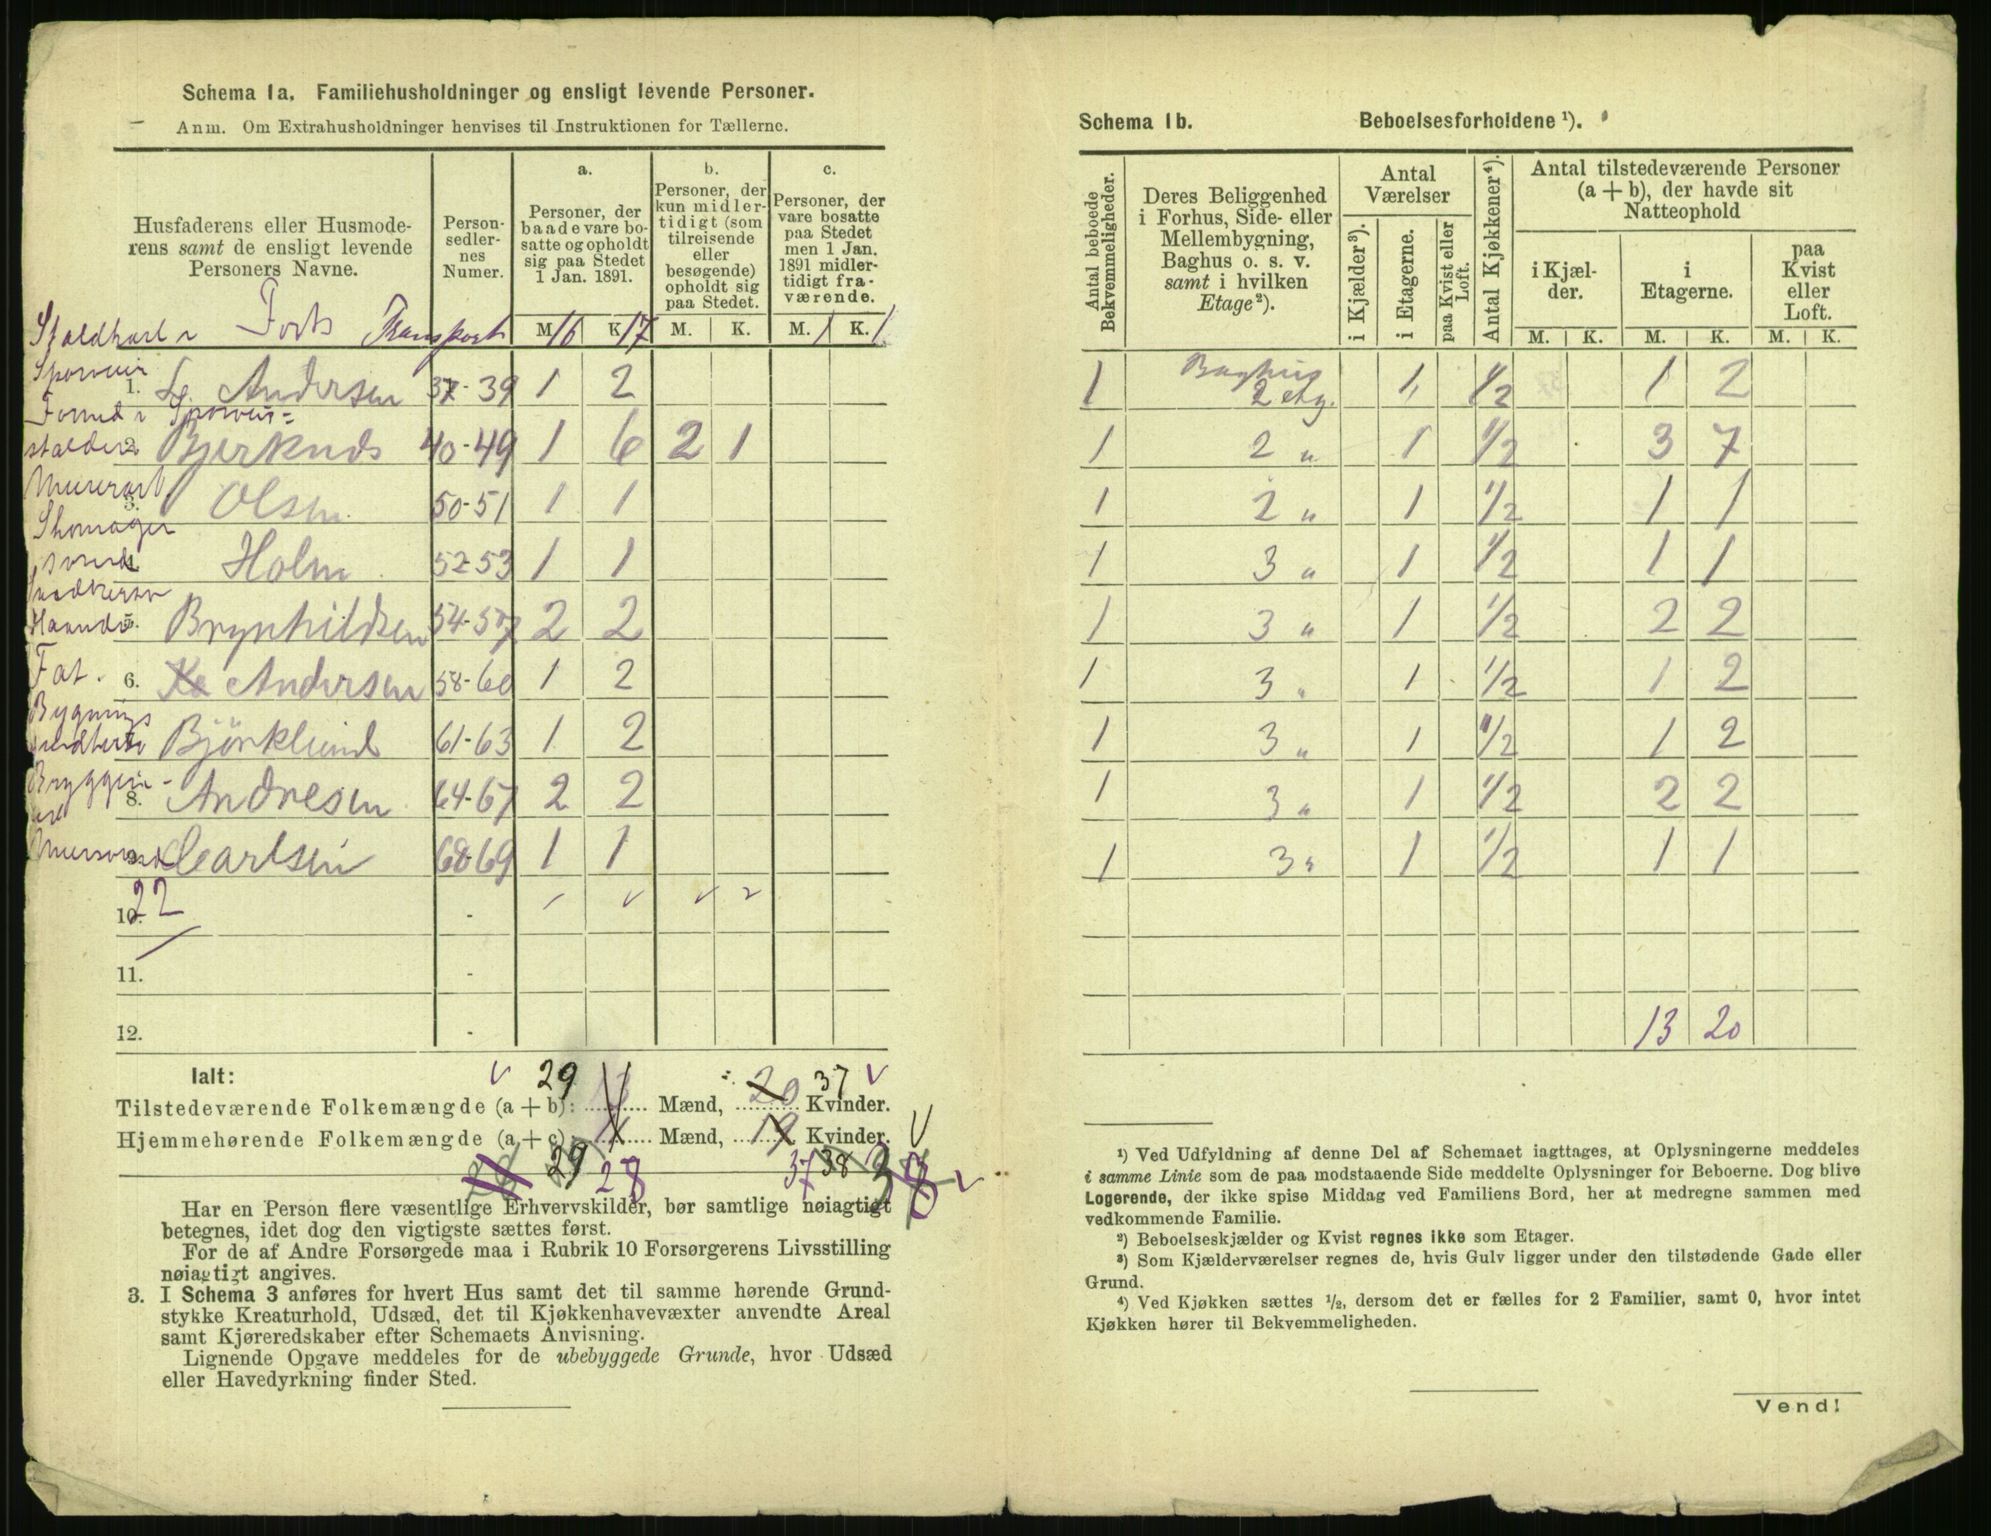 Schema 1a. Familiehusholdninger og ensligt levende Personer.
Anm. Om Extrahusholdninger henvises til Instruktionen for Tællerne.
Husfaderens eller Husmode-
rens samt de ensligt levende
Personers Navne.
Person-
sedler-
nes
Numer.
a.
Personer, der
baade vare bo-
satte og opholdt
sig paa Stedet
1 Jan. 1891.
b.
Personer, der
kun midler-
tidigt (som
tilreisende
eller
besøgende)
opholdt sig
paa Stedet.
c.
Personer, der
vare bosatte
paa Stedet
men 1 Jan.
1891 midler-
tidigt fra-
værende.
Staldkarl i Forts Transport M. 16 K. 17 M. K. M. 1 K. 1
Sporveis
1. L. Andersen 37-39 1 2
Formd i Sporveis=
stalden 2. Bjerknds 40-49 1 6 2 1
Murerarb. 3. Olsen 50-51 1 1
Skomager
svend 4. Holm 52-53 1 1
5. Brynhildsen 54-57 2 2
Fat. 6. Andersen 58-60 1 2
Bygnings
7. Björklund 61-63 1 2
Bryggeri-
8. Andresen 64-67 2 2
9. Carlsen 68-69 1 1
10. 22 -
11. -
12. -
Ialt:
Tilstedeværende Folkemængde (a + b): 29 13 Mænd, 20 37 Kvinder.
Hjemmehørende Folkemængde (a + c): 11 Mænd, 19 Kvinder.
29 28 37 38 38
Har en Person flere væsentlige Erhvervskilder, bør samtlige nøiagtigt
betegnes, idet dog den vigtigste sættes først.
For de af Andre Forsørgede maa i Rubrik 10 Forsørgerens Livsstilling
nøiagtigt angives.
3. I Schema 3 anføres for hvert Hus samt det til samme hørende Grund-
stykke Kreaturhold, Udsæd, det til Kjøkkenhavevæxter anvendte Areal
samt Kjøreredskaber efter Schemaets Anvisning.
Lignende Opgave meddeles for de ubebyggede Grunde, hvor Udsæd
eller Havedyrkning finder Sted.
Schema 1b. Beboelsesforholdene ¹).
Antal beboede
Bekvemmeligheder.
Deres Beliggenhed
i Forhus, Side- eller
Mellembygning,
Baghus o. s. v.
samt i hvilken
Etage²).
Antal
Værelser
i Kjælder³).
i Etagerne.
paa Kvist eller
Loft.
Antal Kjøkkener⁴).
Antal tilstedeværende Personer
(a + b), der havde sit
Natteophold
i Kjæl-
der.
i
Etagerne.
paa
Kvist
eller
Loft.
M. K. M. K. M. K.
1 Baghus
2 etg. 1 1/2 1 2
1 2 „ 1 1/2 3 7
1 2 „ 1 1/2 1 1
1 3 „ 1 1/2 1 1
1 3 „ 1 1/2 2 2
1 3 „ 1 1/2 1 2
1 3 „ 1 1/2 1 2
1 3 „ 1 1/2 2 2
1 3 „ 1 1/2 1 1
13 20
¹) Ved Udfyldning af denne Del af Schemaet iagttages, at Oplysningerne meddeles
i samme Linie som de paa modstaaende Side meddelte Oplysninger for Beboerne. Dog blive
Logerende, der ikke spise Middag ved Familiens Bord, her at medregne sammen med
vedkommende Familie.
²) Beboelseskjælder og Kvist regnes ikke som Etager.
³) Som Kjælderværelser regnes de, hvis Gulv ligger under den tilstødende Gade eller
Grund.
⁴) Ved Kjøkken sættes ½, dersom det er fælles for 2 Familier, samt 0, hvor intet
Kjøkken hører til Bekvemmeligheden.
Vend!